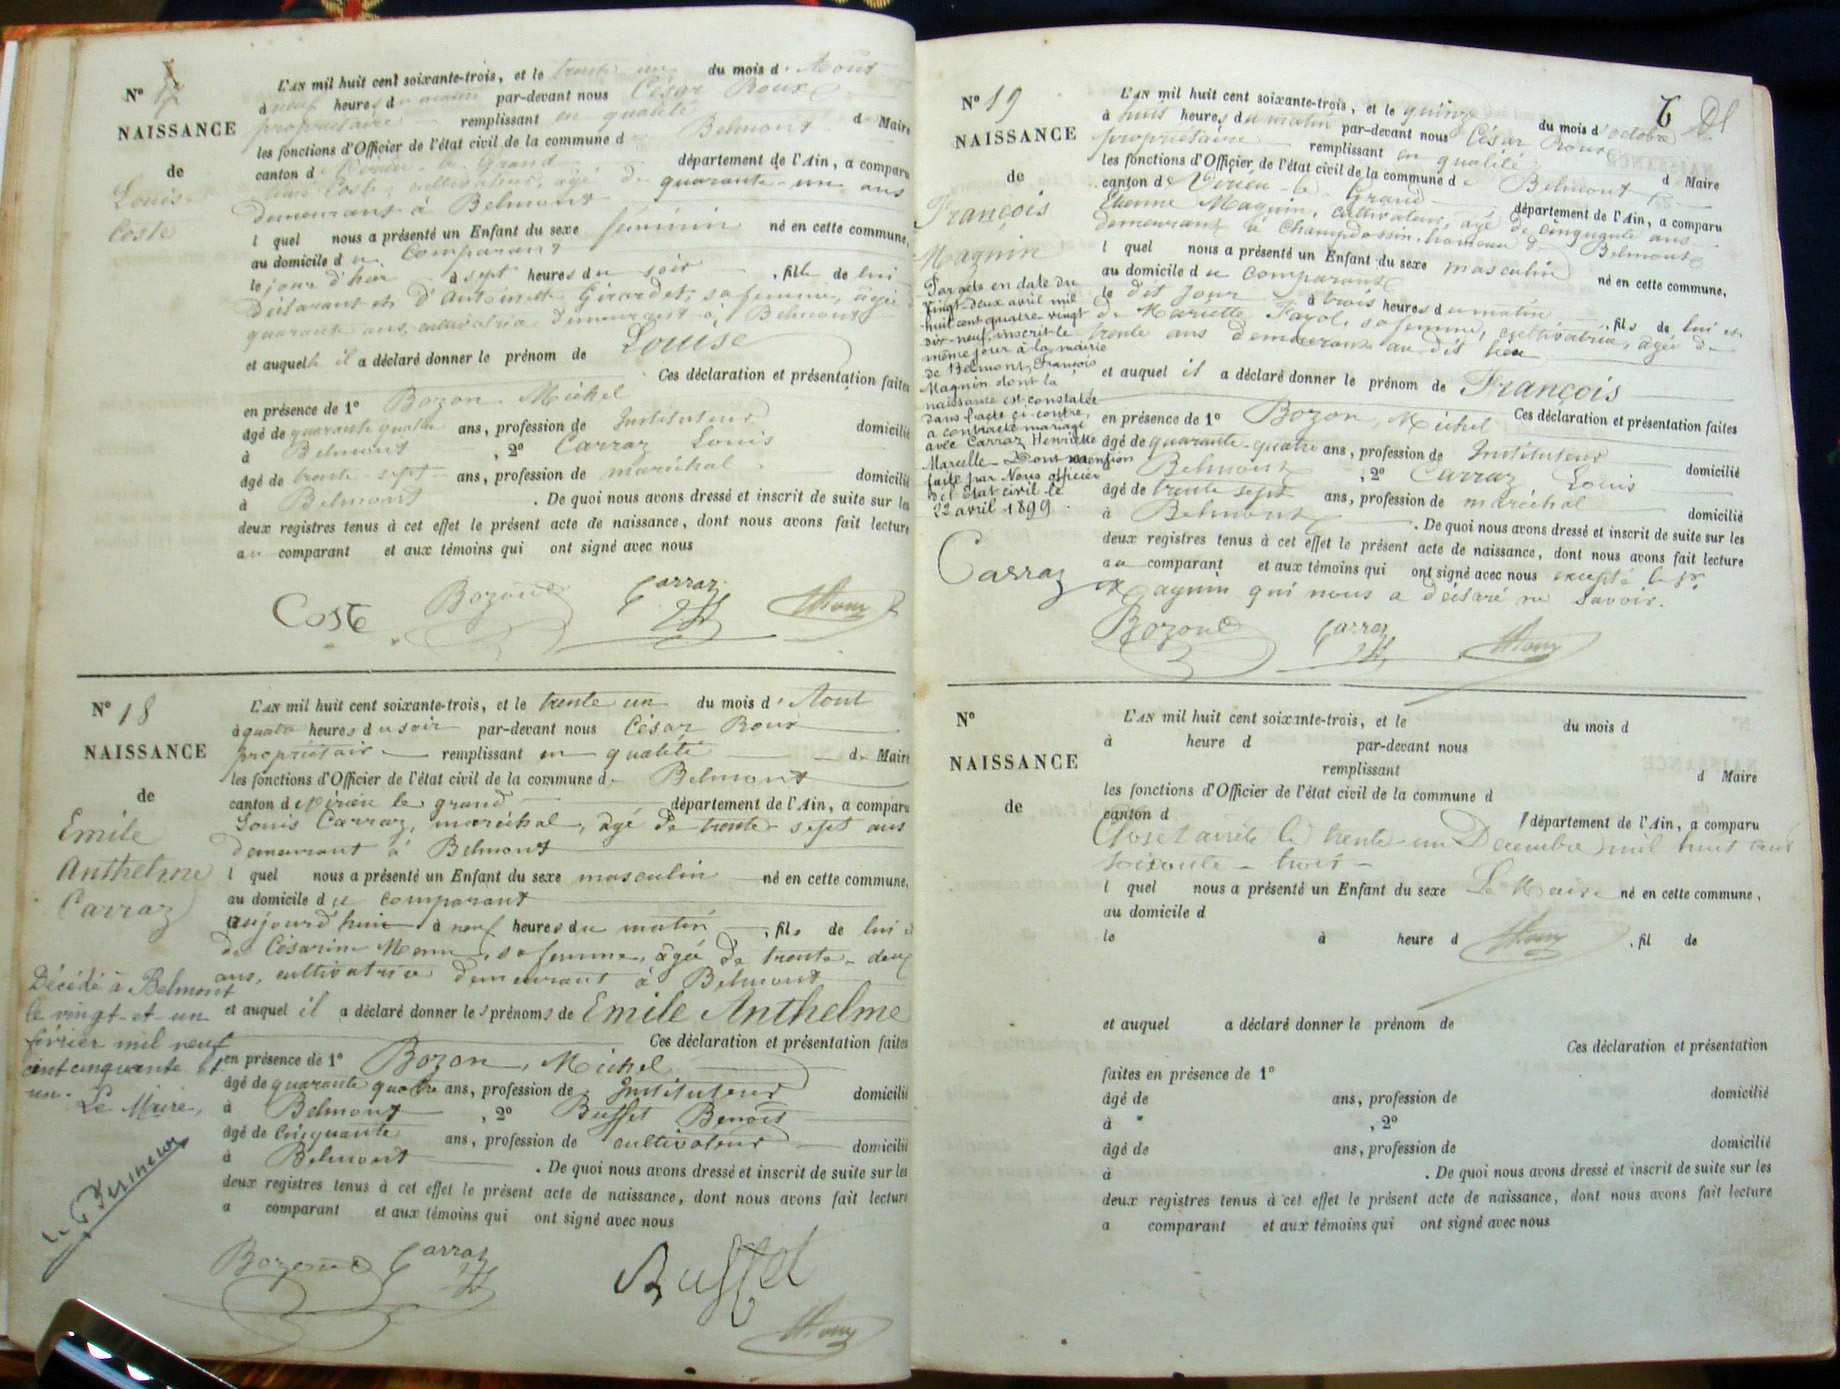 Nº
NAISSANCE
de
Louise
Coste
L'AN mil huit cent soixante-trois, et le trente un du mois d'Aout
à neuf heures du matin par-devant nous César Roux
propriétaire remplissant en qualité de Maire
les fonctions d'Officier de l'état civil de la commune de Belmont
canton de Virieu le Grand département de l'Ain, a comparu
Coste, cultivateur, âgé de quarante un ans
demeurant à Belmont
l quel nous a présenté un Enfant du sexe féminin né en cette commune,
au domicile du comparant
le jour d'hier à sept heures du soir, fille de lui
Déclarant et d'Antoinette Girardet, sa femme, âgée
quarante ans, cultivatrice demeurant à Belmont
et auquel il a déclaré donner le prénom de Louise
Ces déclaration et présentation faites
en présence de 1º Bozon Michel
âgé de quarante quatre ans, profession de Instituteur domicilié
à Belmont, 2º Carraz Louis
âgé de trente sept ans, profession de maréchal domicilié
à Belmont. De quoi nous avons dressé et inscrit de suite sur les
deux registres tenus à cet effet le présent acte de naissance, dont nous avons fait lecture
au comparant et aux témoins qui ont signé avec nous
Coste Bozon Carraz Roux
Nº 18
NAISSANCE
de
Emile
Anthelme
Carraz
Décédé à Belmont
le vingt et un
février mil neuf
cent cinquante et
un.
Le Maire,
L'AN mil huit cent soixante-trois, et le trente un du mois d'Aout
à quatre heures du soir par-devant nous César Roux
propriétaire remplissant en qualité de Maire
les fonctions d'Officier de l'état civil de la commune de Belmont
canton de Virieu le grand département de l'Ain, a comparu
Louis Carraz, maréchal, âgé de trente sept ans
demeurant à Belmont
l quel nous a présenté un Enfant du sexe masculin né en cette commune,
au domicile du comparant
aujourd'hui à neuf heures du matin, fils de lui &
de Césarine sa femme, âgée de trente-deux
ans, cultivatrice demeurant à Belmont
et auquel il a déclaré donner les prénoms de Emile Anthelme
Ces déclaration et présentation faites
en présence de 1º Bozon, Michel
âgé de quarante quatre ans, profession de Instituteur domicilié
à Belmont, 2º Buffet Benoit
âgé de cinquante ans, profession de cultivateur domicilié
à Belmont. De quoi nous avons dressé et inscrit de suite sur les
deux registres tenus à cet effet le présent acte de naissance, dont nous avons fait lecture
a comparant et aux témoins qui ont signé avec nous
Bozon Carraz Buffet
Roux
Nº 19
NAISSANCE
de
François
Magnin
Par acte en date du
vingt-deux avril mil
huit cent quatre vingt
dix-neuf, inscrit le
même jour à la mairie
de Belmont, François
Magnin dont la
naissance est constatée
dans l'acte ci-contre,
a contracté mariage
avec Carraz Henriette
Marcelle. Dont mention
faite par Nous officier
de l'état civil le
22 avril 1899.
Carraz
L'AN mil huit cent soixante-trois, et le quinze du mois d'octobre
à huit heures du matin par-devant nous César Roux
propriétaire remplissant en qualité d Maire
les fonctions d'Officier de l'état civil de la commune de Belmont
canton de Virieu-le-Grand département de l'Ain, a comparu
Etienne Magnin, cultivateur, âgé de cinquante ans
demeurant à Champdossin, hameau de Belmont
l quel nous a présenté un Enfant du sexe masculin né en cette commune,
au domicile du comparant
le dit jour à trois heures du matin, fils de lui et
de Mariette Fayol, sa femme, cultivatrice, âgée de
trente ans demeurant au dit lieu
et auquel il a déclaré donner le prénom de François
Ces déclaration et présentation faites
en présence de 1º Bozon, Michel
âgé de quarante-quatre ans, profession de Instituteur domicilié
à Belmont, 2º Carraz Louis
âgé de trente sept ans, profession de maréchal domicilié
à Belmont. De quoi nous avons dressé et inscrit de suite sur les
deux registres tenus à cet effet le présent acte de naissance, dont nous avons fait lecture
au comparant et aux témoins qui ont signé avec nous excepté le sr
Magnin qui nous a déclaré ne savoir.
Bozon Carraz Roux
Nº
NAISSANCE
de
L'AN mil huit cent soixante-trois, et le du mois d
à heure d par-devant nous
remplissant d Maire
les fonctions d'Officier de l'état civil de la commune d
canton d département de l'Ain, a comparu
Clos et arrêté le trente-un Decembre mil huit cent
soixante-trois
l quel nous a présenté un Enfant du sexe Le Maire né en cette commune,
au domicile d
le à heure d Roux, fil de
et auquel a déclaré donner le prénom de
Ces déclaration et présentation
faites en présence de 1º
âgé de ans, profession de domicilié
à , 2º
âgé de ans, profession de domicilié
à . De quoi nous avons dressé et inscrit de suite sur les
deux registres tenus à cet effet le présent acte de naissance, dont nous avons fait lecture
a comparant et aux témoins qui ont signé avec nous